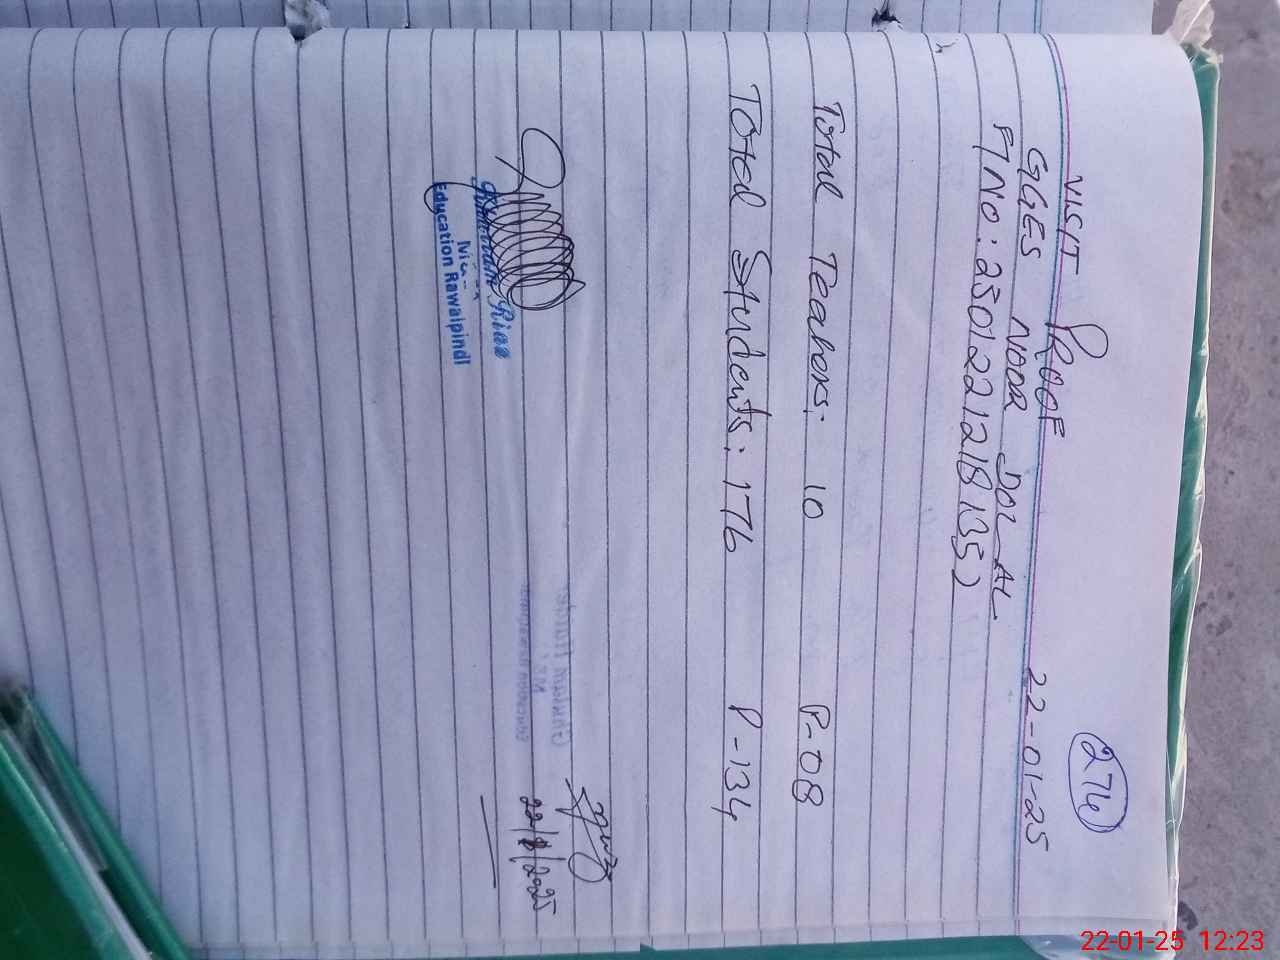 276
VISIT PROOF 22-01-25
GGES NOOR DOLAL
A/NO: 250122121813S)
Total Teachers: 10 P-08
Total Students: 176 P-134
Riaz
Education Rawalpindi
22/1/2025
22-01-25 12:23